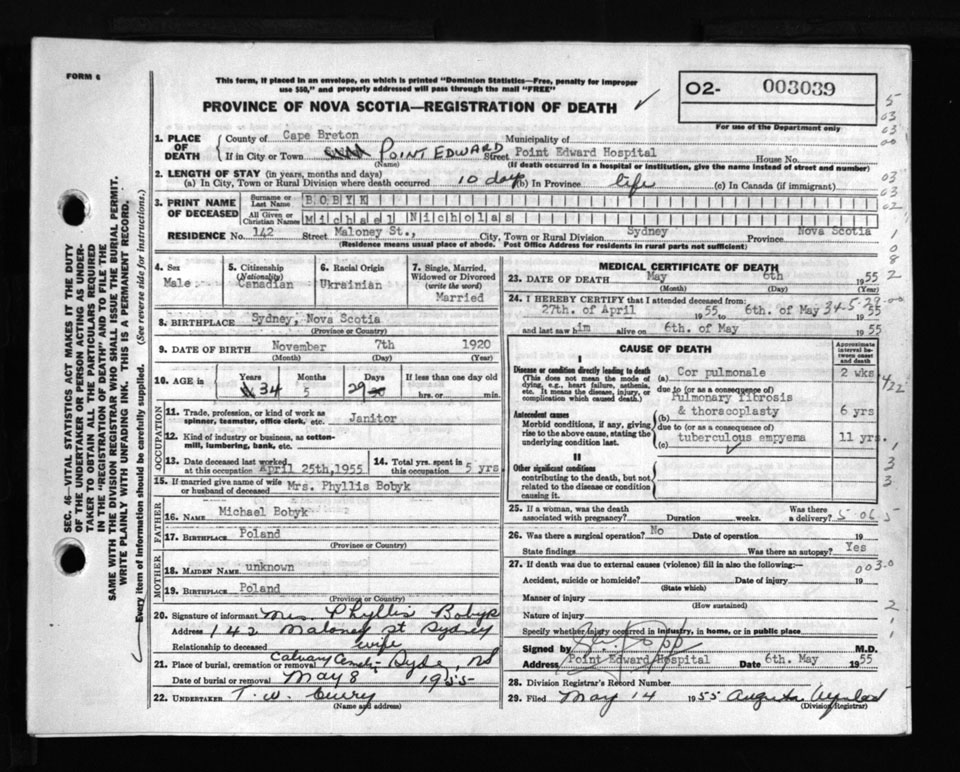 FORM 6
This form, if placed in an envelope, on which is printed "Dominion Statistics—Free, penalty for improper
use $50," and properly addressed will pass through the mail "FREE"
PROVINCE OF NOVA SCOTIA—REGISTRATION OF DEATH
O2- 003039
For use of the Department only
1. PLACE OF DEATH
County of Cape Breton Municipality of
If in City or Town POINT EDWARD Street Point Edward Hospital House No.
(Name) (If death occurred in a hospital or institution, give the name instead of street and number)
2. LENGTH OF STAY (in years, months and days)
(a) In City, Town or Rural Division where death occurred 10 days (b) In Province life (c) In Canada (if immigrant)
3. PRINT NAME OF DECEASED
Surname or Last Name BOBYK
All Given or Christian Names Michael Nicholas
RESIDENCE No. 142 Street Maloney St., City, Town or Rural Division Sydney Province Nova Scotia
(Residence means usual place of abode. Post Office Address for residents in rural parts not sufficient)
4. Sex Male
5. Citizenship (Nationality) Canadian
6. Racial Origin Ukrainian
7. Single, Married, Widowed or Divorced (write the word) Married
8. BIRTHPLACE Sydney, Nova Scotia
(Province or Country)
9. DATE OF BIRTH November 7th 1920
(Month) (Day) (Year)
10. AGE in Years 34 Months 5 Days 29 If less than one day old hrs. or min.
OCCUPATION
11. Trade, profession, or kind of work as spinner, teamster, office clerk, etc. Janitor
12. Kind of industry or business, as cotton-mill, lumbering, bank, etc.
13. Date deceased last worked at this occupation April 25th, 1955
14. Total yrs. spent in this occupation 5 yrs
15. If married give name of wife or husband of deceased Mrs. Phyllis Bobyk
FATHER
16. Name Michael Bobyk
17. Birthplace Poland
(Province or Country)
MOTHER
18. Maiden Name unknown
19. Birthplace Poland
(Province or Country)
20. Signature of informant Mrs. Phyllis Bobyk
Address 142 Maloney St Sydney
Relationship to deceased wife
21. Place of burial, cremation or removal Calvary Cemety
Date of burial or removal May 8 1955
22. UNDERTAKER T. W. Curry
(Name and address)
MEDICAL CERTIFICATE OF DEATH
23. DATE OF DEATH May 6th 1955
(Month) (Day) (Year)
24. I HEREBY CERTIFY that I attended deceased from:
27th. of April 1955 to 6th. of May 1955
and last saw him alive on 6th. of May 1955
34-5-29
CAUSE OF DEATH
Approximate interval between onset and death
I
Disease or condition directly leading to death
(This does not mean the mode of dying, e.g., heart failure, asthenia, etc. It means the disease, injury, or complication which caused death.)
(a) Cor pulmonale 2 wks.
due to (or as a consequence of)
Antecedent causes
Morbid conditions, if any, giving rise to the above cause, stating the underlying condition last.
Pulmonary fibrosis
(b) & thoracoplasty 6 yrs
due to (or as a consequence of)
(c) tuberculous empyema 11 yrs
II
Other significant conditions
contributing to the death, but not related to the disease or condition causing it.
25. If a woman, was the death associated with pregnancy? Duration weeks. Was there a delivery?
26. Was there a surgical operation? No Date of operation 19
State findings Was there an autopsy? Yes
27. If death was due to external causes (violence) fill in also the following:—
Accident, suicide or homicide? Date of injury 19
(State which)
Manner of injury
(How sustained)
Nature of injury
Specify whether injury occurred in industry, in home, or in public place
Signed by M.D.
Address Point Edward Hospital Date 6th. May 1955
28. Division Registrar's Record Number
29. Filed May 14 1955
(Division Registrar)
SEC. 46—VITAL STATISTICS ACT MAKES IT THE DUTY
OF THE UNDERTAKER OR PERSON ACTING AS UNDER-
TAKER TO OBTAIN ALL THE PARTICULARS REQUIRED
IN THE "REGISTRATION OF DEATH" AND TO FILE THE
SAME WITH THE DIVISION REGISTRAR WHO SHALL ISSUE THE BURIAL PERMIT.
WRITE PLAINLY WITH UNFADING INK. THIS IS A PERMANENT RECORD.
Every item of information should be carefully supplied. (See reverse side for instructions.)